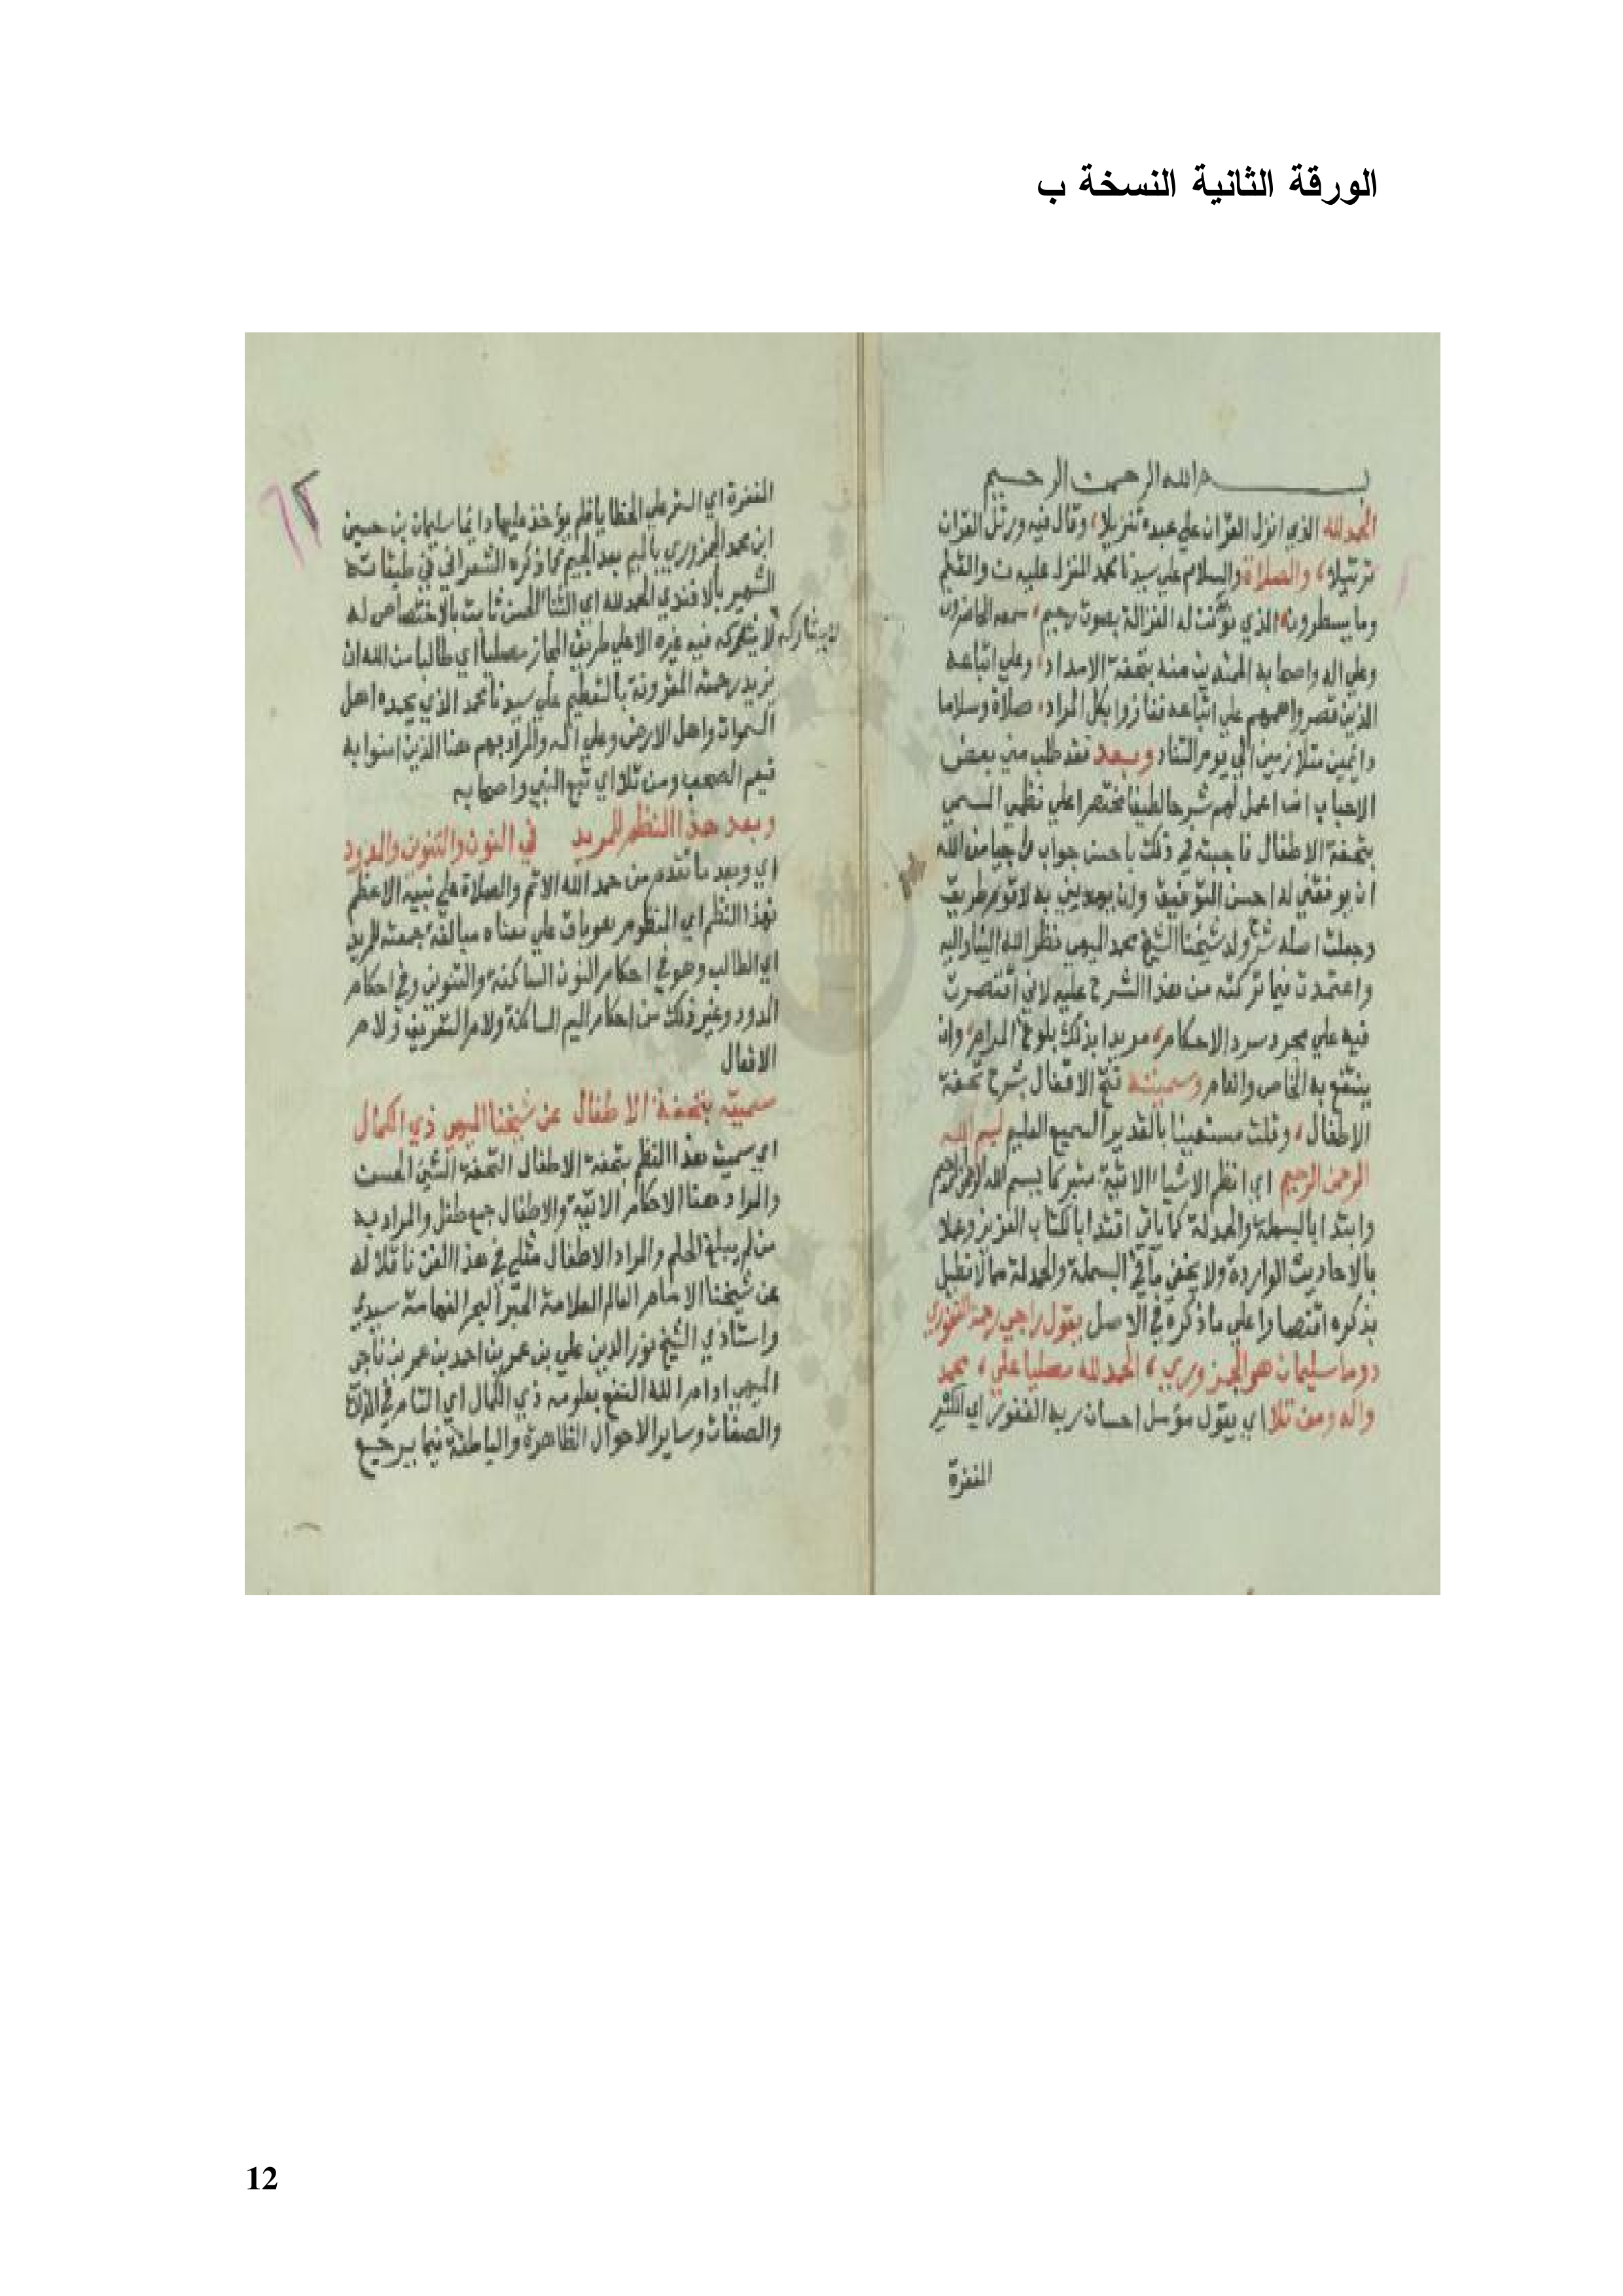 الورقة الثانية النسخة ب
بسم الله الرحمن الرحيم
الحمد لله الذي انزل القران علي عبده تنزيلا وقال فيه ورتل القران
ترتيلا والصلاة والسلام علي سيدنا محمد المنزل عليه ن والقلم
وما يسطرون الذي نزلت له الغزالة بصوت رحيم سمعه الحاضرون
وعلي اله واصحابه المهتدين منه بتحفة الامداد وعلي اتباعه
الذين قصروا هممهم علي اتباعه ففازوا بكل المراد صلاة وسلاما
دائمين متلازمين الي يوم التناد وبعد فقد طلب مني بعض
الاحباب ان اعمل لهم شرحا لطيفا مختصرا علي نظمي المسمي
بتحفة الاطفال فاجبته في ذلك باحسن جواب راجيا من الله
ان يوفقني له احسن التوفيق وان يهديني به لاقوم طريق
وجعلت اصله شرح ولد شيخنا الشيخ محمد الميهي نظر الله الينا واليه
واعتمدت فيما تركته من هذا الشرح عليه لاني اقتصرت
فيه علي مجرد سرد الاحكام مريدا بذلك بلوغ المرام وان
ينتفع به الخاص والعام وسميته فتح الاقفال بشرح تحفة
الاطفال وقلت مستعينا بالقدير السميع العليم بسم الله
الرحمن الرحيم اي انظم الاشيا الاتية متبركا ببسم الله الرحمن الرحيم
وابتدا بالبسملة والحمدلة كما ياتي اقتدا بالكتاب العزيز وعملا
بالاحاديث الواردة ولا يخفي ما في البسملة والحمدلة مما لا نطيل
بذكره اقتصارا علي ما ذكره في الاصل يقول راجي رحمة الغفور
دوما سليمان هو الجمزوري الحمد لله مصليا علي محمد
واله ومن تلا اي يقول مؤمل احسان ربه الغفور اي الكثير
المغفرة
المغفرة اي الستر علي الخطايا فلم يؤاخذ عليها دايما سليمان بن حسين
ابن محمد الجمزوري بالميم بعد الجيم كما ذكره الشعراني في طبقاته
الشهير بالافندي الحمد لله اي الثنا الحسن ثابت بالاختصاص له
لا يشاركه فيه غيره الا علي طريق المجاز مصليا اي طالبا من الله ان
لا يشاركه
يزيد رحمته المقرونة بالتعظيم علي سيدنا محمد الذي يحمده اهل
السموات واهل الارض وعلي اله والمراد بهم هنا الذين امنوا به
فيعم الصحب ومن تلا اي تبع النبي واصحابه
وبعد هذا النظم للمريد في النون والتنوين والمدود
اي وبعد ما تقدم من حمد الله الاتم والصلاة علي نبيه الاعظم
فهذا النظم اي المنظوم هو باق علي معناه مبالغة جمعته للمريد
اي الطالب وهو في احكام النون الساكنة والتنوين وفي احكام
المدود وغير ذلك من احكام الميم الساكنة ولام التعريف ولام
الافعال
سميته بتحفة الاطفال عن شيخنا الميهي ذي الكمال
اي سميت هذا النظم بتحفة الاطفال التحفة الشي الحسن
والمراد هنا الاحكام الاتية والاطفال جمع طفل والمراد به
من لم يبلغ الحلم والمراد الاطفال مثلي في هذا الفن ناقلا له
عن شيخنا الامام العالم العلامة الحبر البحر الفهامة سيدي
واستاذي الشيخ نور الدين علي بن عمر بن احمد بن عمر بن ناجي
الميهي ادام الله النفع بعلومه ذي الكمال اي التام في الذات
والصفات وساير الاحوال الظاهرة والباطنة فيما يرجع
12